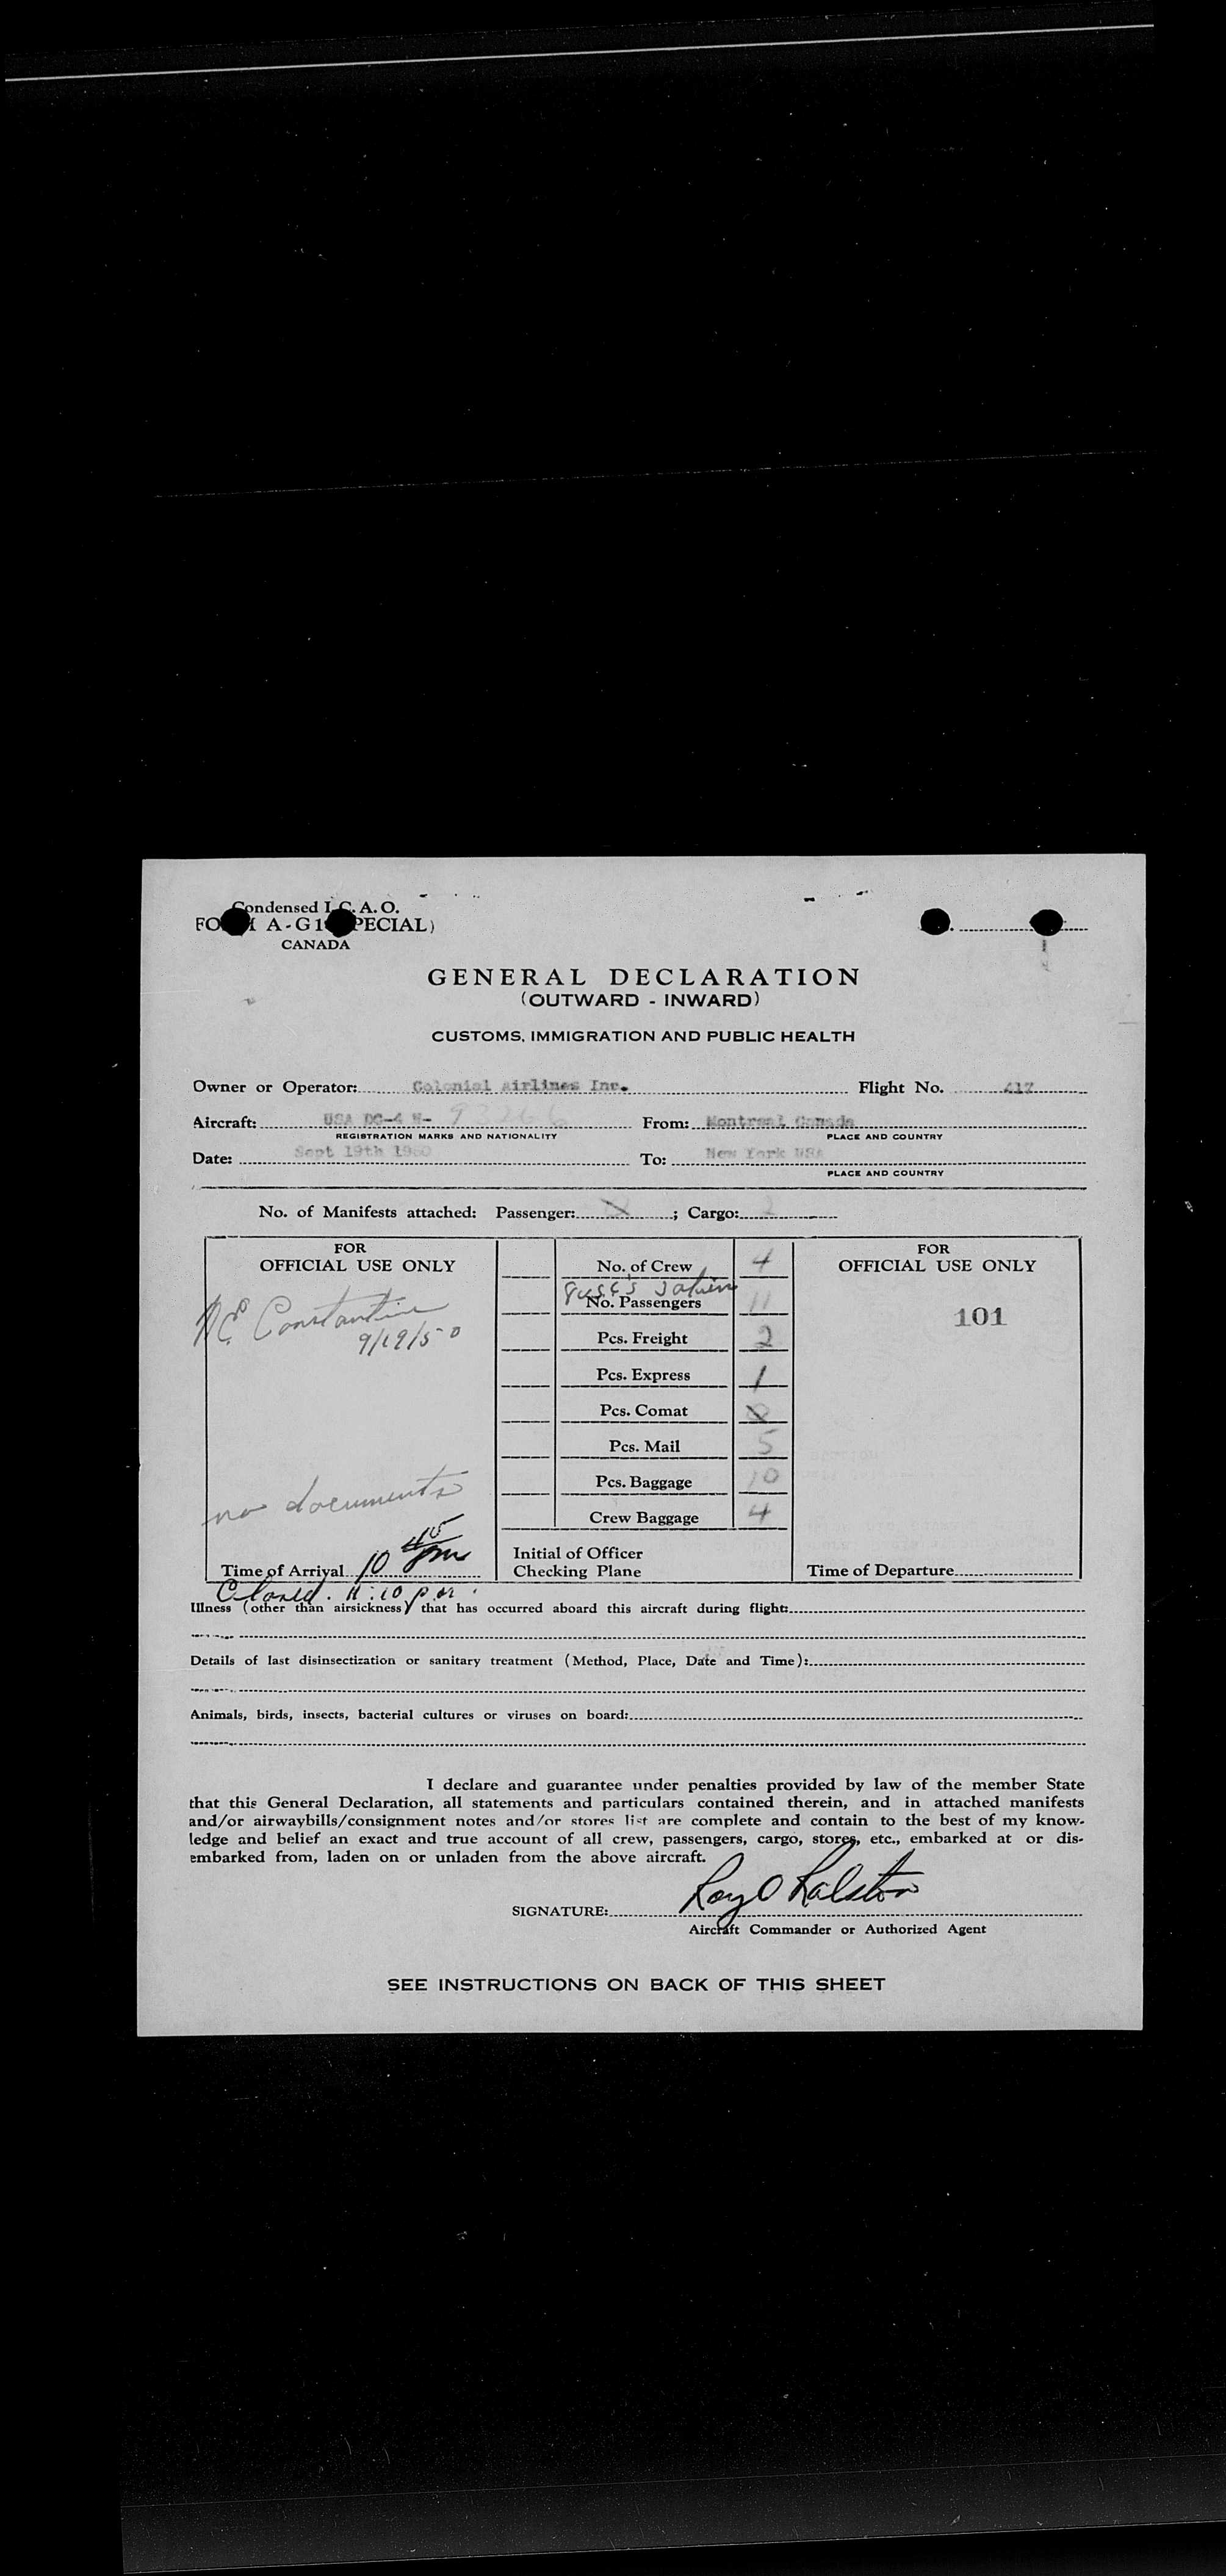 Condensed I.C.A.O.
A-G1
CANADA
GENERAL DECLARATION
(OUTWARD - INWARD)
CUSTOMS, IMMIGRATION AND PUBLIC HEALTH
Owner or Operator: Colonial Airlines Inc. Flight No. 417
Aircraft: USA DC-4 N- 93266 From: Montreal Canada
REGISTRATION MARKS AND NATIONALITY PLACE AND COUNTRY
Date: Sept 19th 1950 To: New York USA
PLACE AND COUNTRY
No. of Manifests attached: Passenger: ; Cargo: 2
FOR
OFFICIAL USE ONLY
Constantine
9/19/50
no documents
Time of Arrival 10 45 pm
Closed. 11:10 p.m.
No. of Crew 4
No. Passengers 11
Pcs. Freight 2
Pcs. Express 1
Pcs. Comat
Pcs. Mail 5
Pcs. Baggage 10
Crew Baggage 4
Initial of Officer
Checking Plane
FOR
OFFICIAL USE ONLY
101
Time of Departure
Illness (other than airsickness) that has occurred aboard this aircraft during flight:
Details of last disinsectization or sanitary treatment (Method, Place, Date and Time):
Animals, birds, insects, bacterial cultures or viruses on board:
I declare and guarantee under penalties provided by law of the member State
that this General Declaration, all statements and particulars contained therein, and in attached manifests
and/or airwaybills/consignment notes and/or stores list are complete and contain to the best of my know-
ledge and belief an exact and true account of all crew, passengers, cargo, stores, etc., embarked at or dis-
embarked from, laden on or unladen from the above aircraft.
SIGNATURE: Roy O Ralston
Aircraft Commander or Authorized Agent
SEE INSTRUCTIONS ON BACK OF THIS SHEET